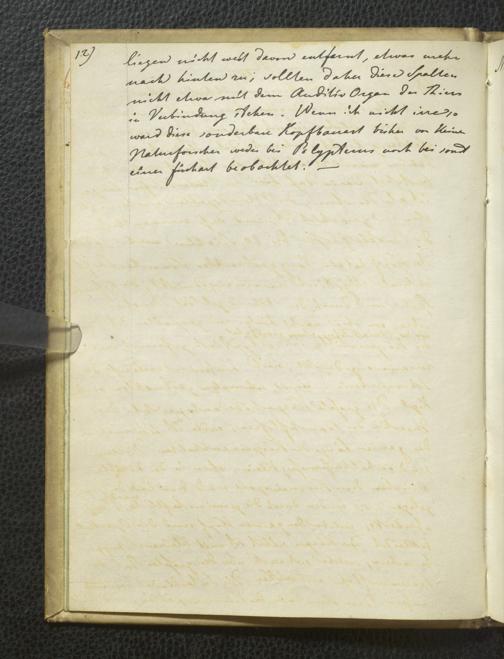 12)
liegen nicht weit davon entfernt, etwas mehr
nach hinten zu; sollten daher diese Spalten
nicht etwa mit dem Auditiv Organ des Thiers
in Verbindung stehen. Wenn ich nicht irre, so
ward diese sonderbare Kopfbauart bisher von keine
Naturforscher weder bei Polypterus noch bei sonst
einer Fischart beobachtet. —